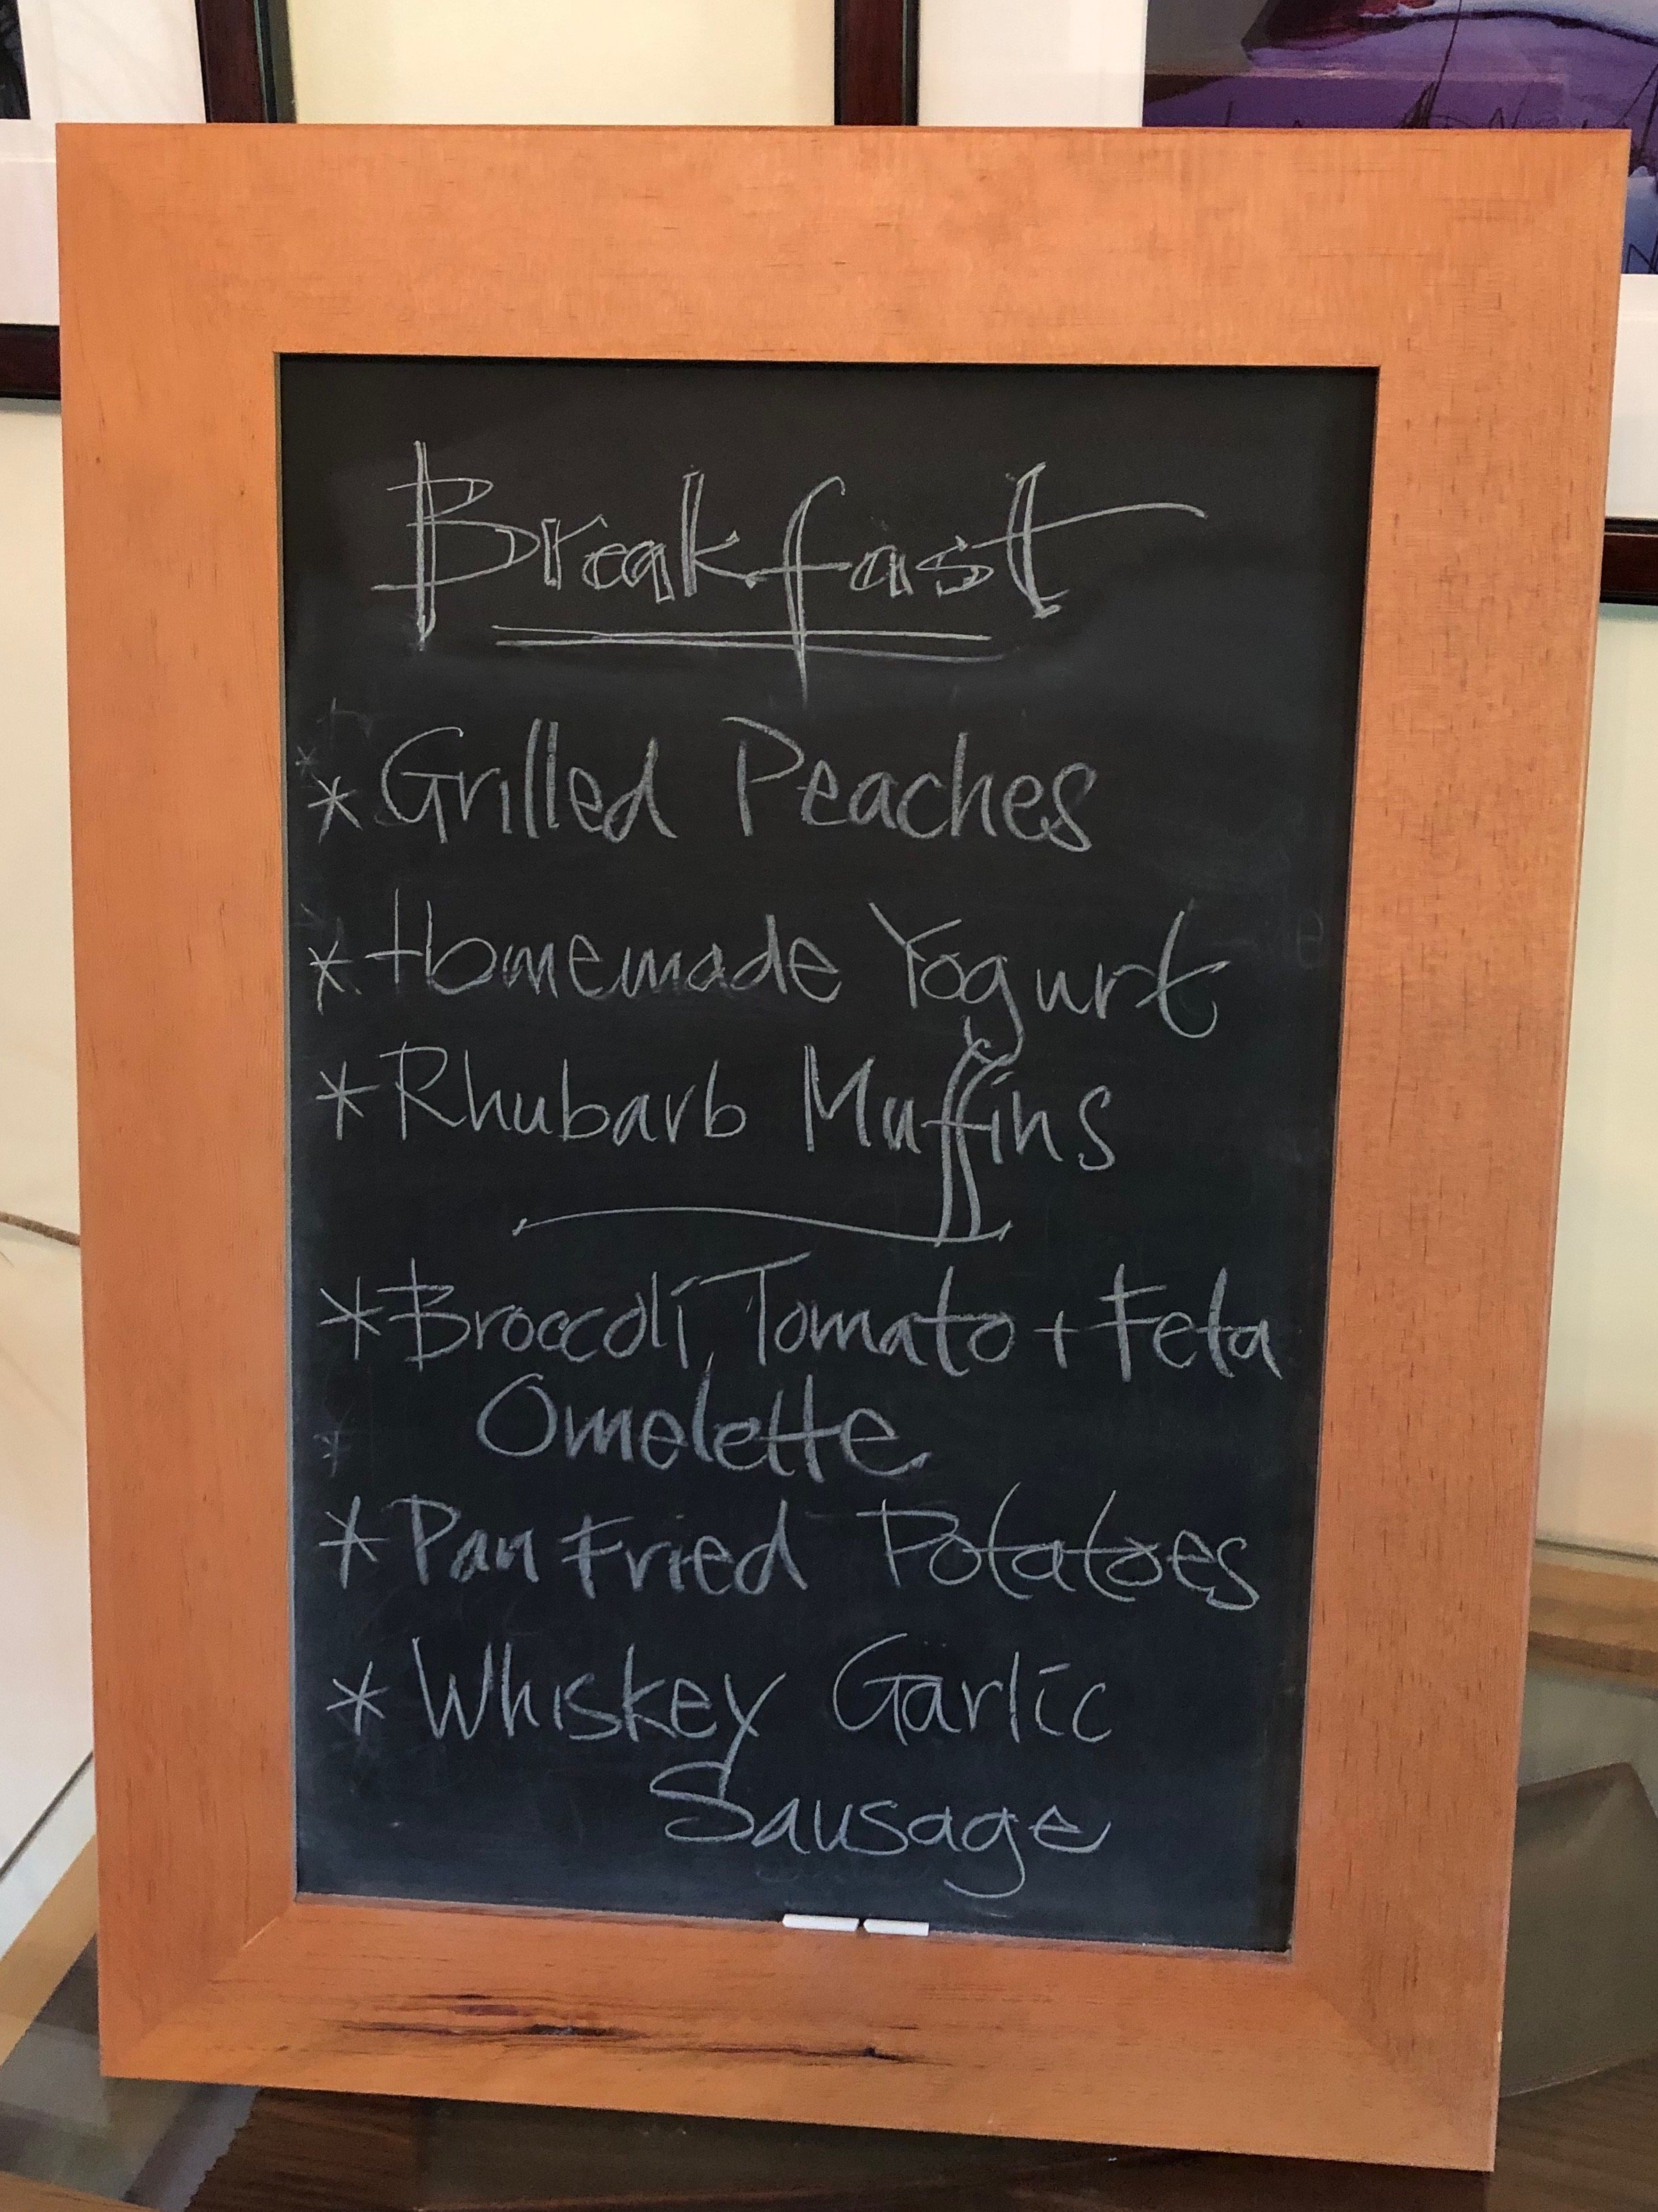 Breakfast
* Grilled Peaches
* Homemade Yogurt
* Rhubarb Muffins
* Broccoli, Tomato + Feta
Omelette
* Pan Fried Potatoes
* Whiskey Garlic
Sausage